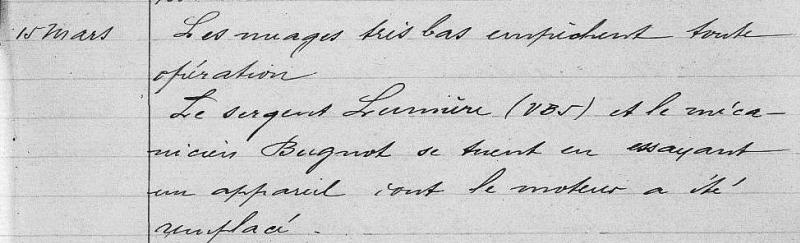 15 Mars Les nuages très bas empêchent toute
opération
Le sergent Lumière (VB5) et le méca-
nicien Bugnot se tuent en essayant
un appareil dont le moteur a été
remplacé.